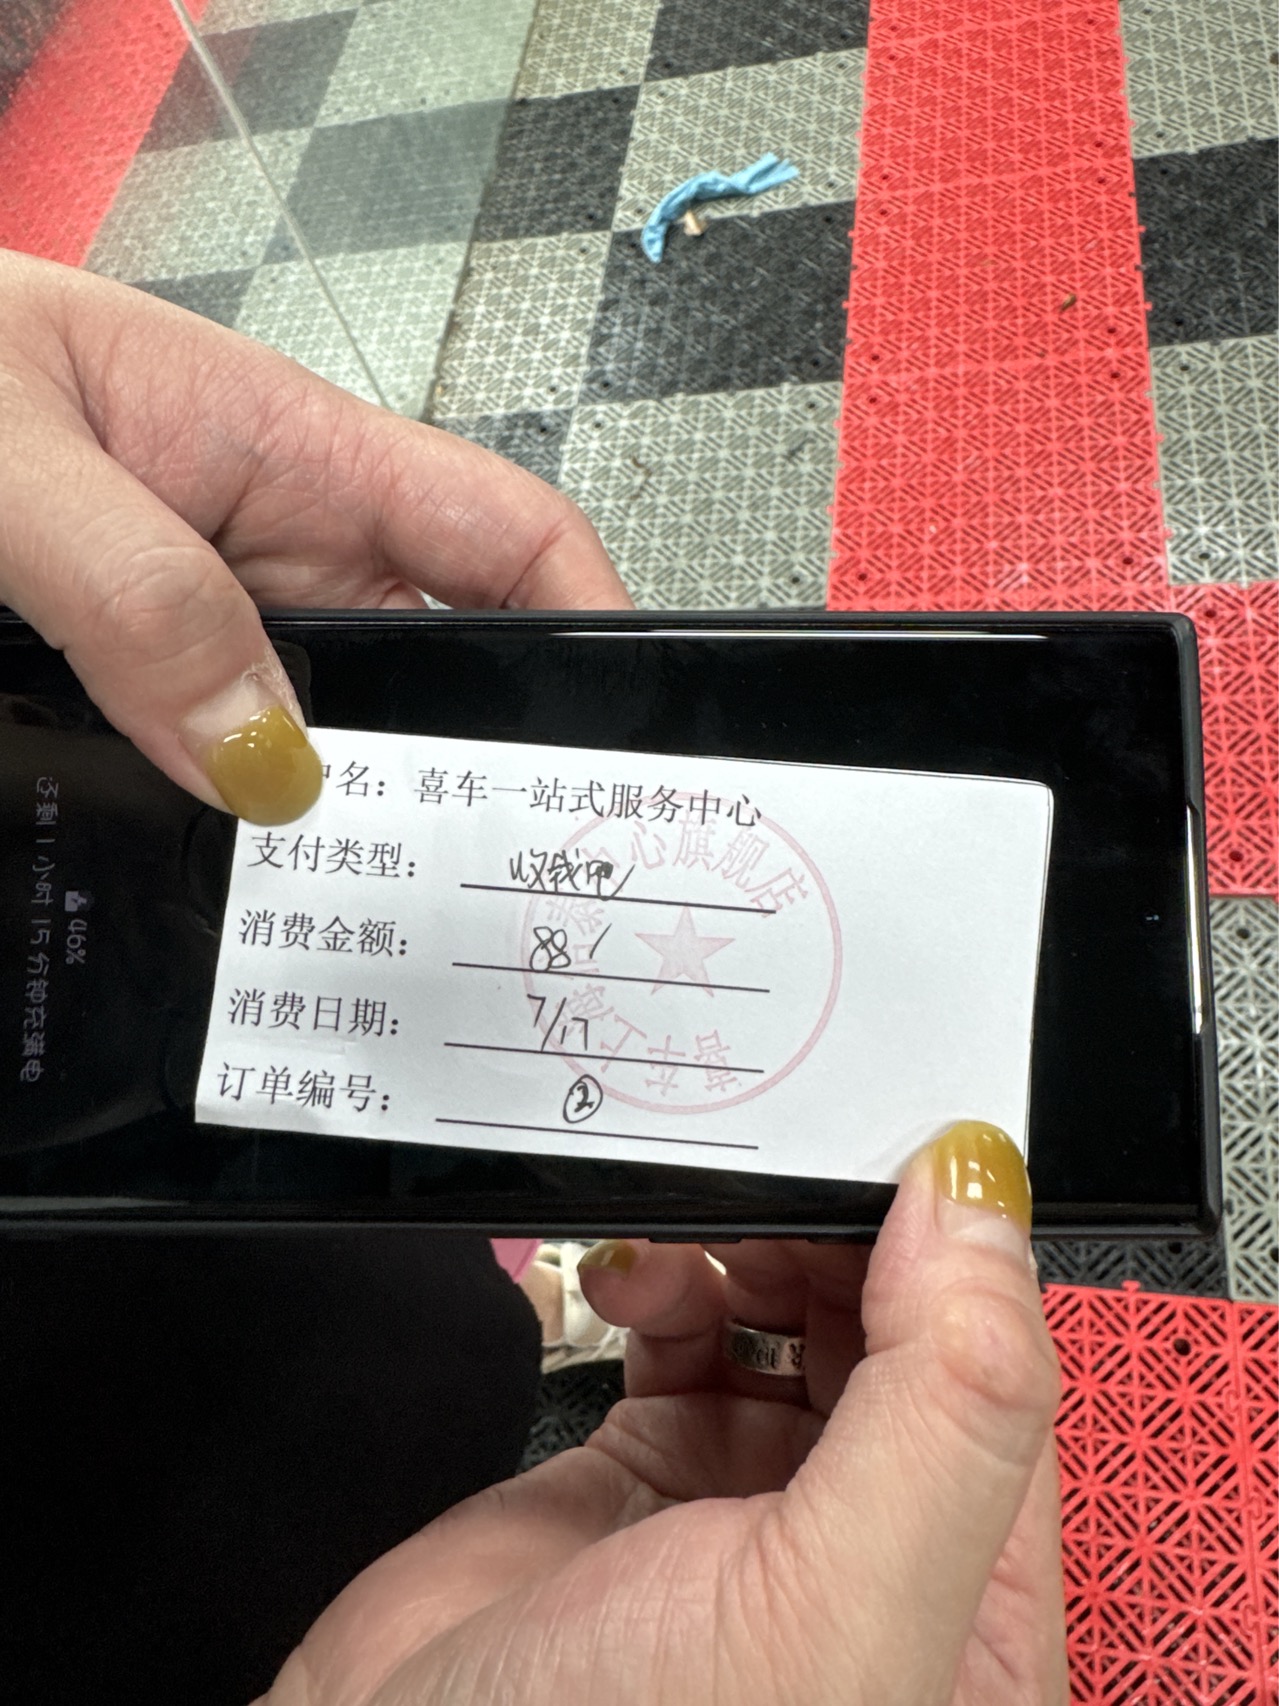 名：喜车一站式服务中心
支付类型：收钱吧
消费金额：88
消费日期：7/17
订单编号：②
心旗舰店
喜车上
46%
还剩1小时15分钟充满电